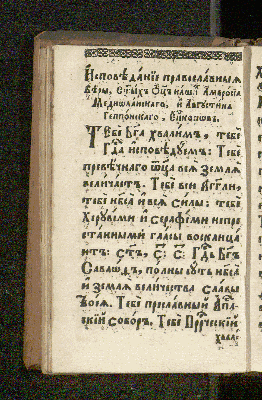 Исповѣданїе православныѧ
вѣры, ст҃ыхъ ѻц҃ъ нашихъ Амвросїа
Медиѡланскаго, и Аѵгꙋстина
Гиппонїскаго, Еп҃кѡпѡвъ.
Тебѐ бг҃а хвалимъ, тебѐ
гд҃а исповѣдꙋемъ: Тебѐ
превѣчнаго ѻц҃а всѧ землѧ
величаетъ. Тебѣ вси агг҃ли,
тебѣ нб҃са и всѧ силы: тебѣ
Херꙋвїми и серафїми непре
станными гласы восклица
ютъ: ст҃ъ, с҃: с҃: гд҃ь бг҃ъ
Саваѡѳъ, полны сꙋть нб҃са
и землѧ величества славы
твоеѧ. Тебѐ преславный ап҃лс
скїй соборъ, Тебѐ прⷪ҇рческїй
хвали